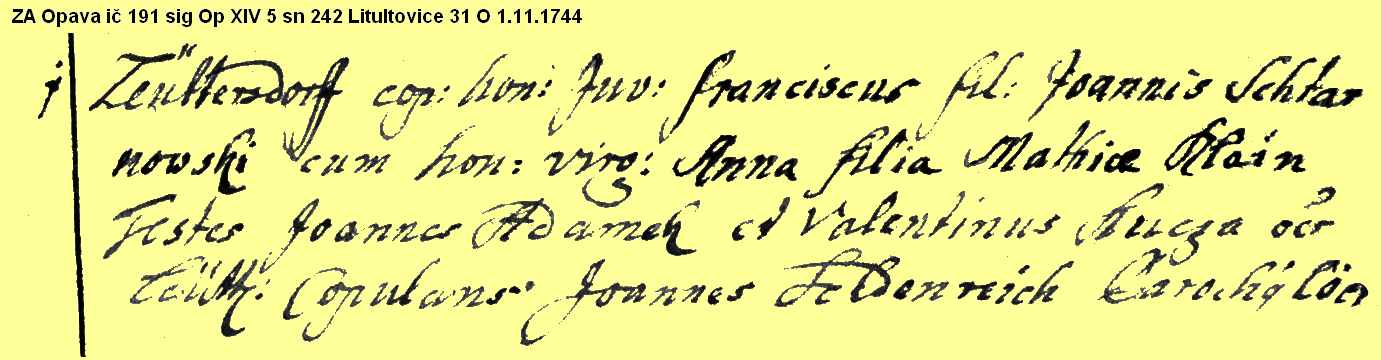 ZA Opava ič 191 sig Op XIV 5 sn 242 Litultovice 31 O 1.11.1744
Leüttersdorff cop: hon: Juv: franciscus fil: Joannis Schtar
nowski cum hon: virg: Anna filia Mathiæ Klain
Testes Joannes Adamek et Valentinus Kucza oēs
Leütt: Copulans Joannes Feldenreich